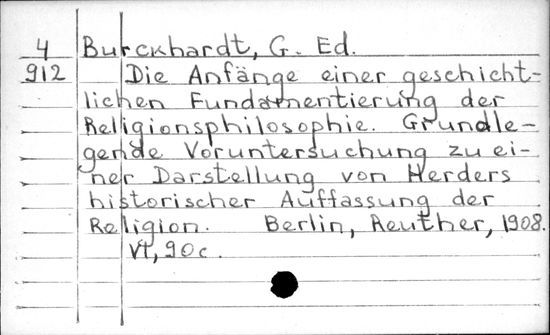 4 Burckhardt, G. Ed.
912 Die Anfänge einer geschicht-
lichen Fundamentierung der
Religionsphilosophie. Grundle-
gende Voruntersuchung zu ei-
ner Darstellung von Herders
historischer Auffassung der
Religion. Berlin, Reuther, 1908.
VI, 90 c.